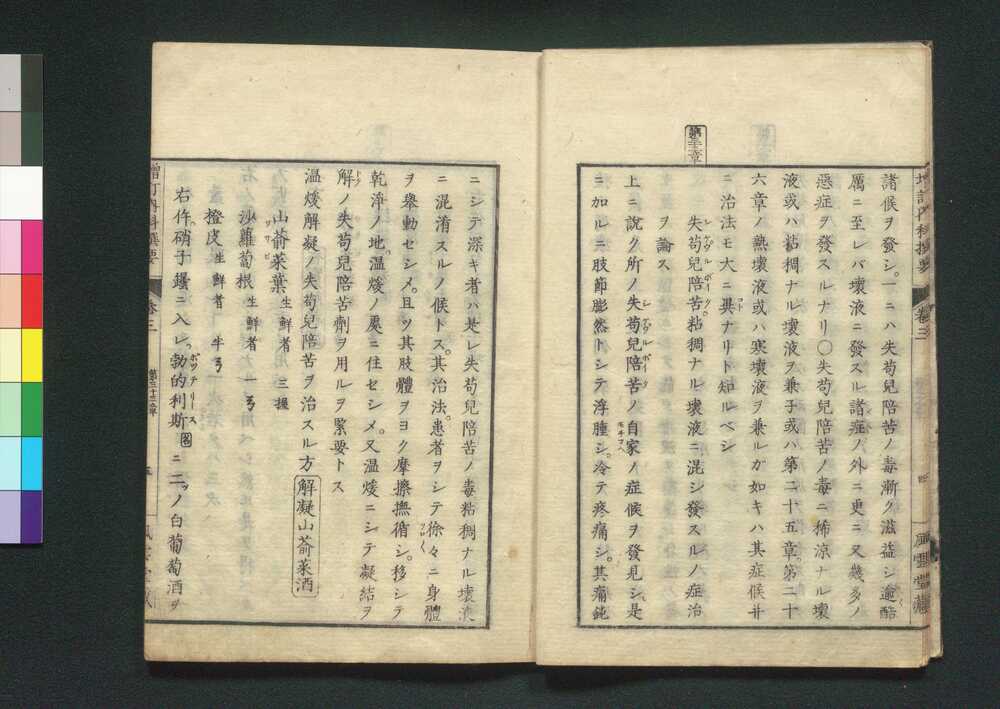 諸候ヲ發シ。一ニハ失苟兒陪苦ノ毒漸ク滋益シ逾酷
厲ニ至レバ壞液ニ發スル諸症ノ外ニ更ニ又幾多ノ
惡症ヲ發スルナリ〇失苟兒陪苦ノ毒ニ稀凉ナル壞
液或ハ粘稠ナル壞液ヲ兼子或ハ第二十五章。第二十
六章ノ熱壞液或ハ寒壞液ヲ兼ルガ如キハ其症候幷
ニ治法モ大ニ異ナリト知ルベシ
第三十三章
失苟兒陪苦。粘稠ナル壞液ニ混ジ發スルノ症治
ヲ論ス
上ニ說ク所ノ失苟兒陪苦ノ自家ノ症候ヲ發見シ。是
ニ加ルニ肢節膨然トシテ浮腫シ。冷テ疼痛シ。其痛鈍
增訂內科撰要 卷三 四 風雲堂藏
ニシテ深キ者ハ是レ失苟兒陪苦ノ毒粘稠ナル壞液
ニ混淆スルノ候トス。其治法。患者ヲシテ徐々ニ身體
ヲ擧動セシメ。且ツ其肢體ヲヨク摩擦撫循シ。移シテ
乾淨ノ地。温煖ノ處ニ住セシメ。又温煖ニシテ凝結ヲ
解ノ失苟兒陪苦劑ヲ用ルヲ緊要トス
温煖解凝ノ失苟兒陪苦ヲ治スル方 解凝山葵菜酒
山葵菜葉 生鮮者 三握
沙蘿蔔根 生鮮者 一弓
橙皮 生鮮者 半弓
右件硝子罎ニ入レ、勃的利斯 圖 ニ二ツノ白葡萄酒ヲ
增訂內科撰要 卷三 第三十三章 五